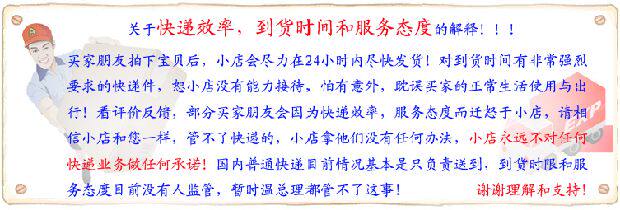 关于快递效率，到货时间和服务态度的解释！！！
买家朋友拍下宝贝后，小店会尽力在24小时内尽快发货！对到货时间有非常强烈
要求的快递件，恕小店没有能力接待。怕有意外，耽误买家的正常生活使用与出
行！看评价反馈，部分买家朋友会因为快递效率，服务态度而迁怒于小店，请相
信小店和您一样，管不了快递的，小店拿他们没有任何办法，小店永远不对任何
快递业务做任何承诺！国内普通快递目前情况基本是只负责送到，到货时限和服
务态度目前没有人监管，暂时温总理都管不了这事！ 谢谢理解和支持！